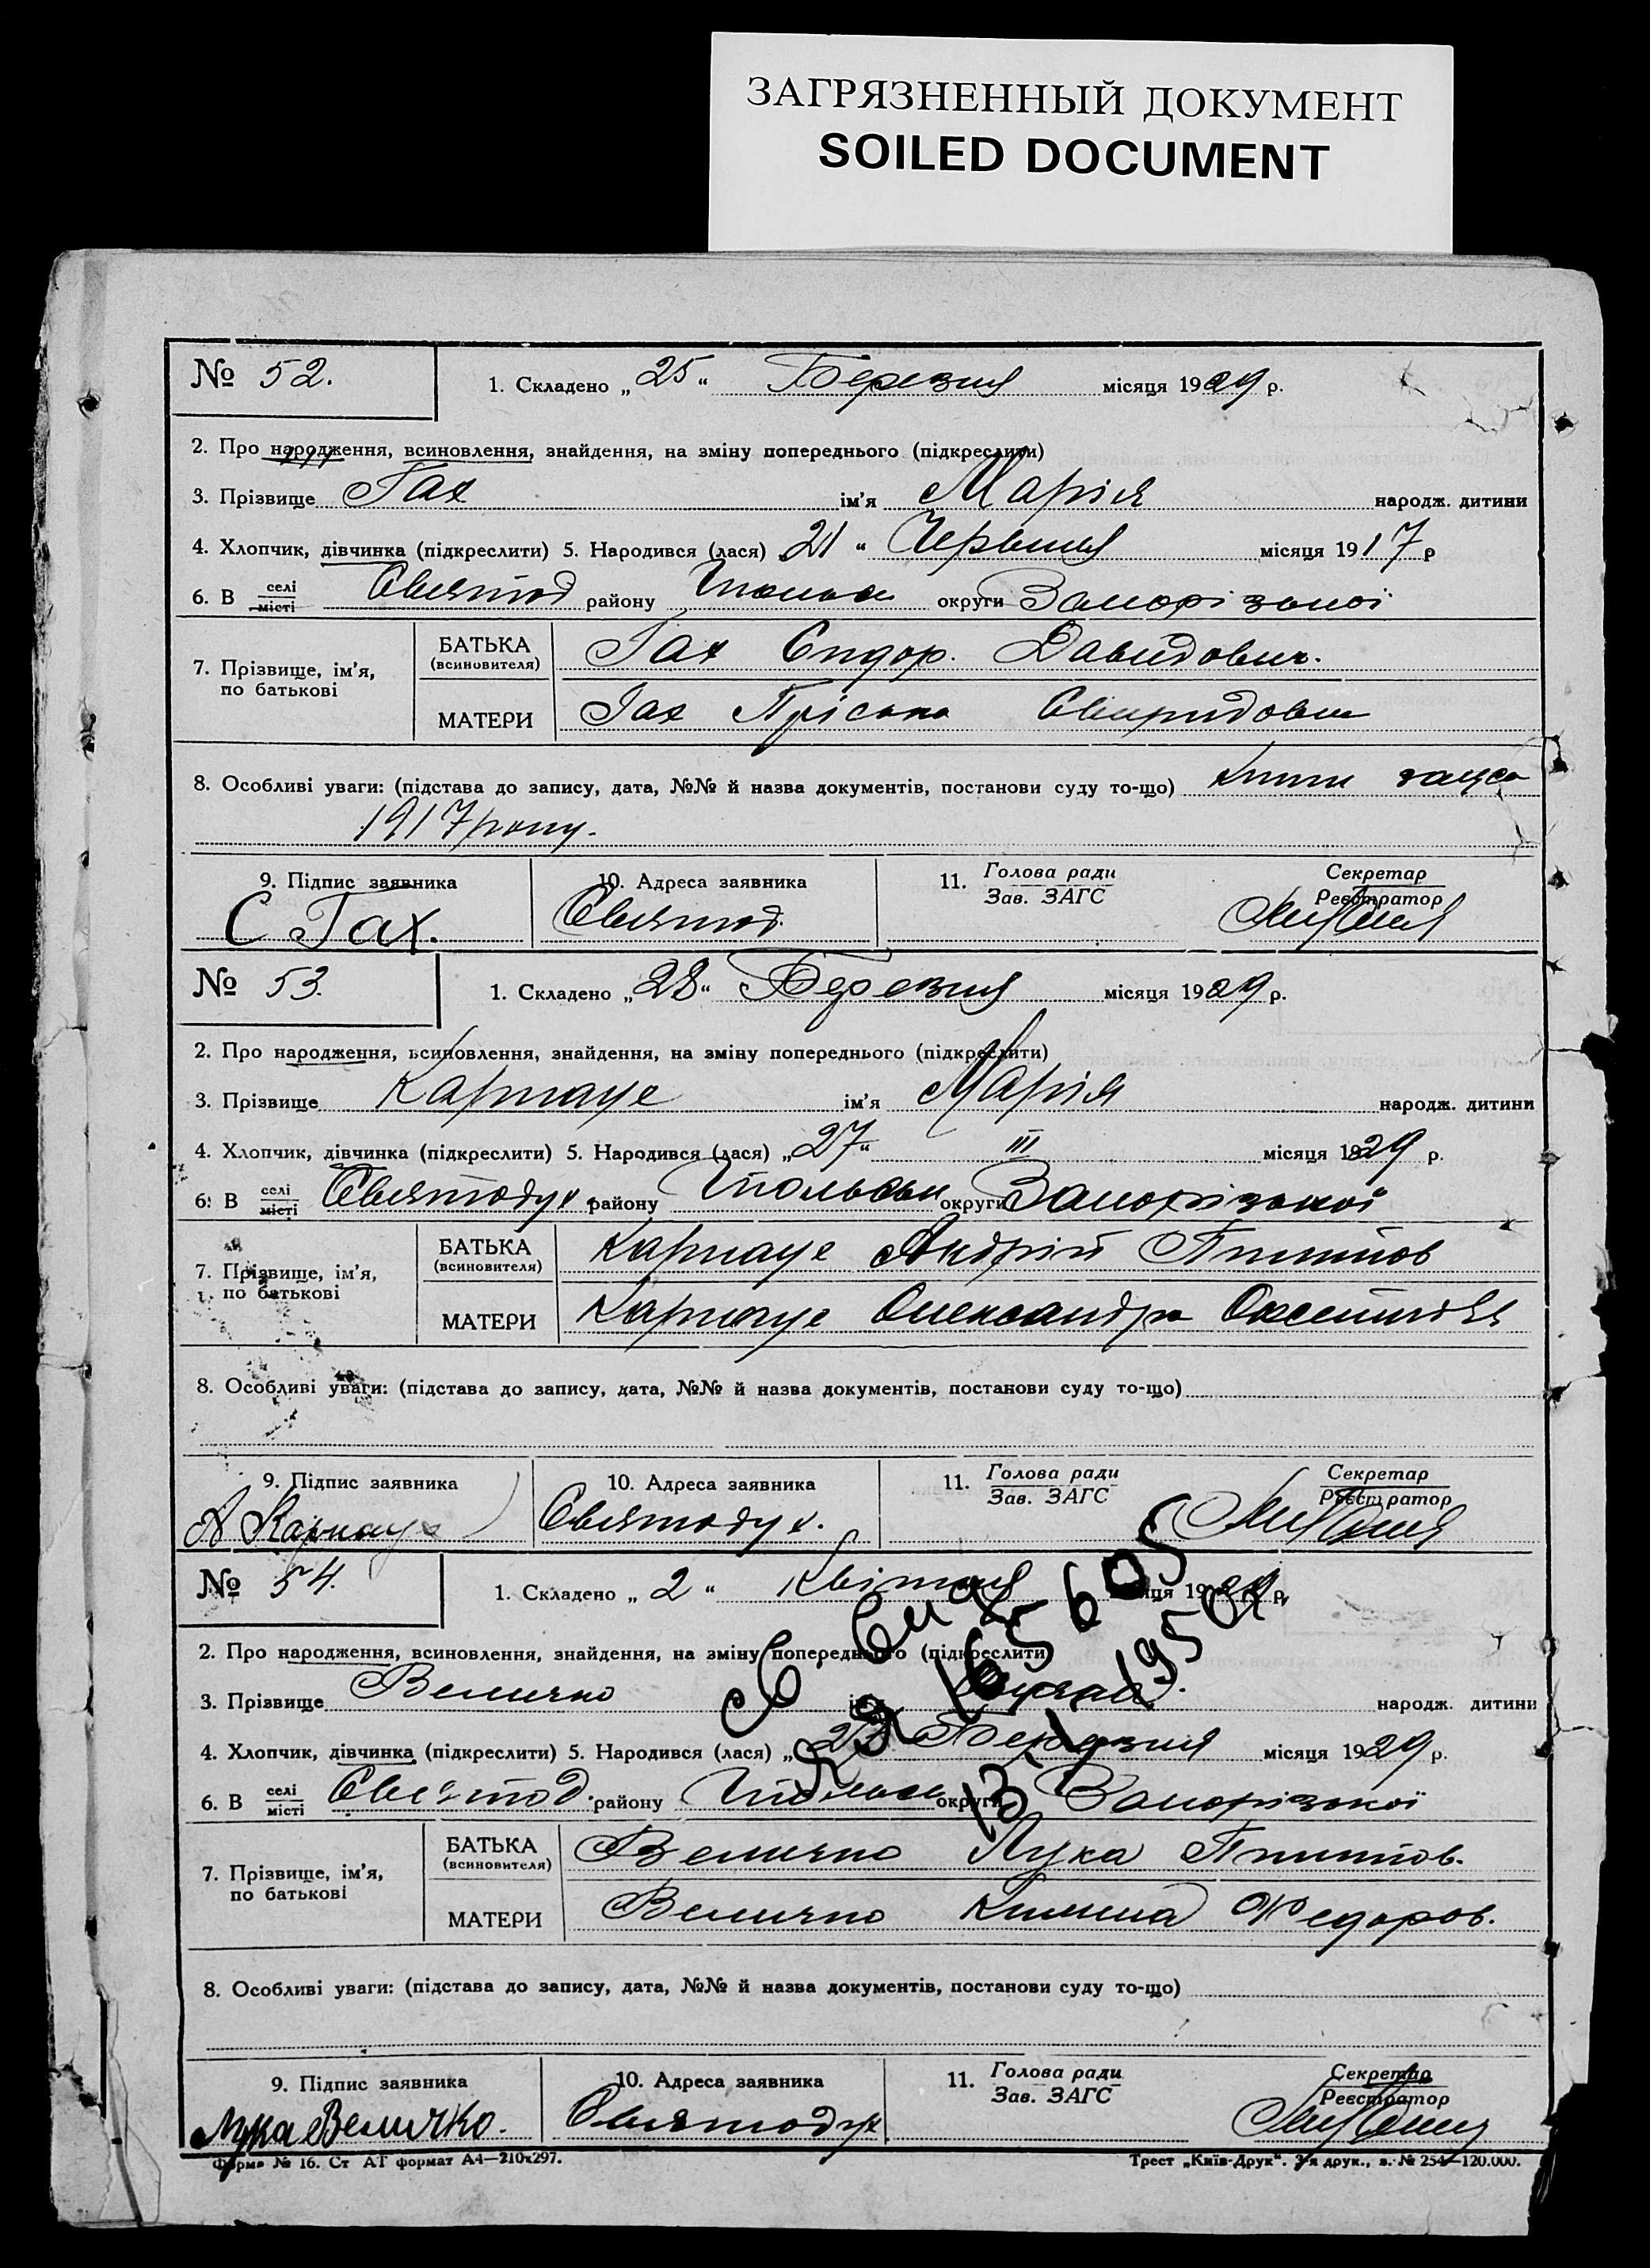 ЗАГРЯЗНЕННЫЙ ДОКУМЕНТ
SOILED DOCUMENT
№ 52. 1. Складено „25“ Березня місяця 1929 р.
2. Про народження, всиновлення, знайдення, на зміну попереднього (підкреслити)
3. Прізвище Гах ім’я Марія народж. дитини
4. Хлопчик, дівчинка (підкреслити) 5. Народився (лася) 21 “ Червня місяця 1917 р
6. В селі місті Святод району округи Запорізької
7. Прізвище, ім’я, по батькові
БАТЬКА (всиновителя) Гах Сидор. Давидович.
МАТЕРИ Гах Пріська Свиридовн
8. Особливі уваги: (підстава до запису, дата, №№ й назва документів, постанови суду то-що) книги
1917 року.
9. Підпис заявника 10. Адреса заявника 11. Голова ради Зав. ЗАГС Секретар Реєстратор
С Гах. Святод.
№ 53. 1. Складено „28“ Березня місяця 1929 р.
2. Про народження, всиновлення, знайдення, на зміну попереднього (підкреслити)
3. Прізвище Карнаух ім’я Марія народж. дитини
4. Хлопчик, дівчинка (підкреслити) 5. Народився (лася) „27“ III місяця 1929 р.
6. В селі місті Святодух. району округи Запорізької
7. Прізвище, ім’я, по батькові
БАТЬКА (всиновителя) Карнаух Андрій Пилипов
МАТЕРИ Карнаух Олександра
8. Особливі уваги: (підстава до запису, дата, №№ й назва документів, постанови суду то-що)
9. Підпис заявника 10. Адреса заявника 11. Голова ради Зав. ЗАГС Секретар Реєстратор
А Карнаух Святодух.
№ 54. 1. Складено „ 2 “ Квітня місяця 1929 р.
2. Про народження, всиновлення, знайдення, на зміну попереднього (підкреслити)
3. Прізвище Величко народж. дитини
4. Хлопчик, дівчинка (підкреслити) 5. Народився (лася) „ Березня місяця 1929 р.
6. В селі місті Святод. району округи Запорізької
7. Прізвище, ім’я, по батькові
БАТЬКА (всиновителя) Величко Лука Пилипов.
МАТЕРИ Величко Килина Федоров.
8. Особливі уваги: (підстава до запису, дата, №№ й назва документів, постанови суду то-що)
9. Підпис заявника 10. Адреса заявника 11. Голова ради Зав. ЗАГС Секретар Реєстратор
Лука Величко. Святодух
Форма № 16. Ст АТ формат А4—210х297. Трест „Київ-Друк“. 3-я друк., з. № 254—120.000.